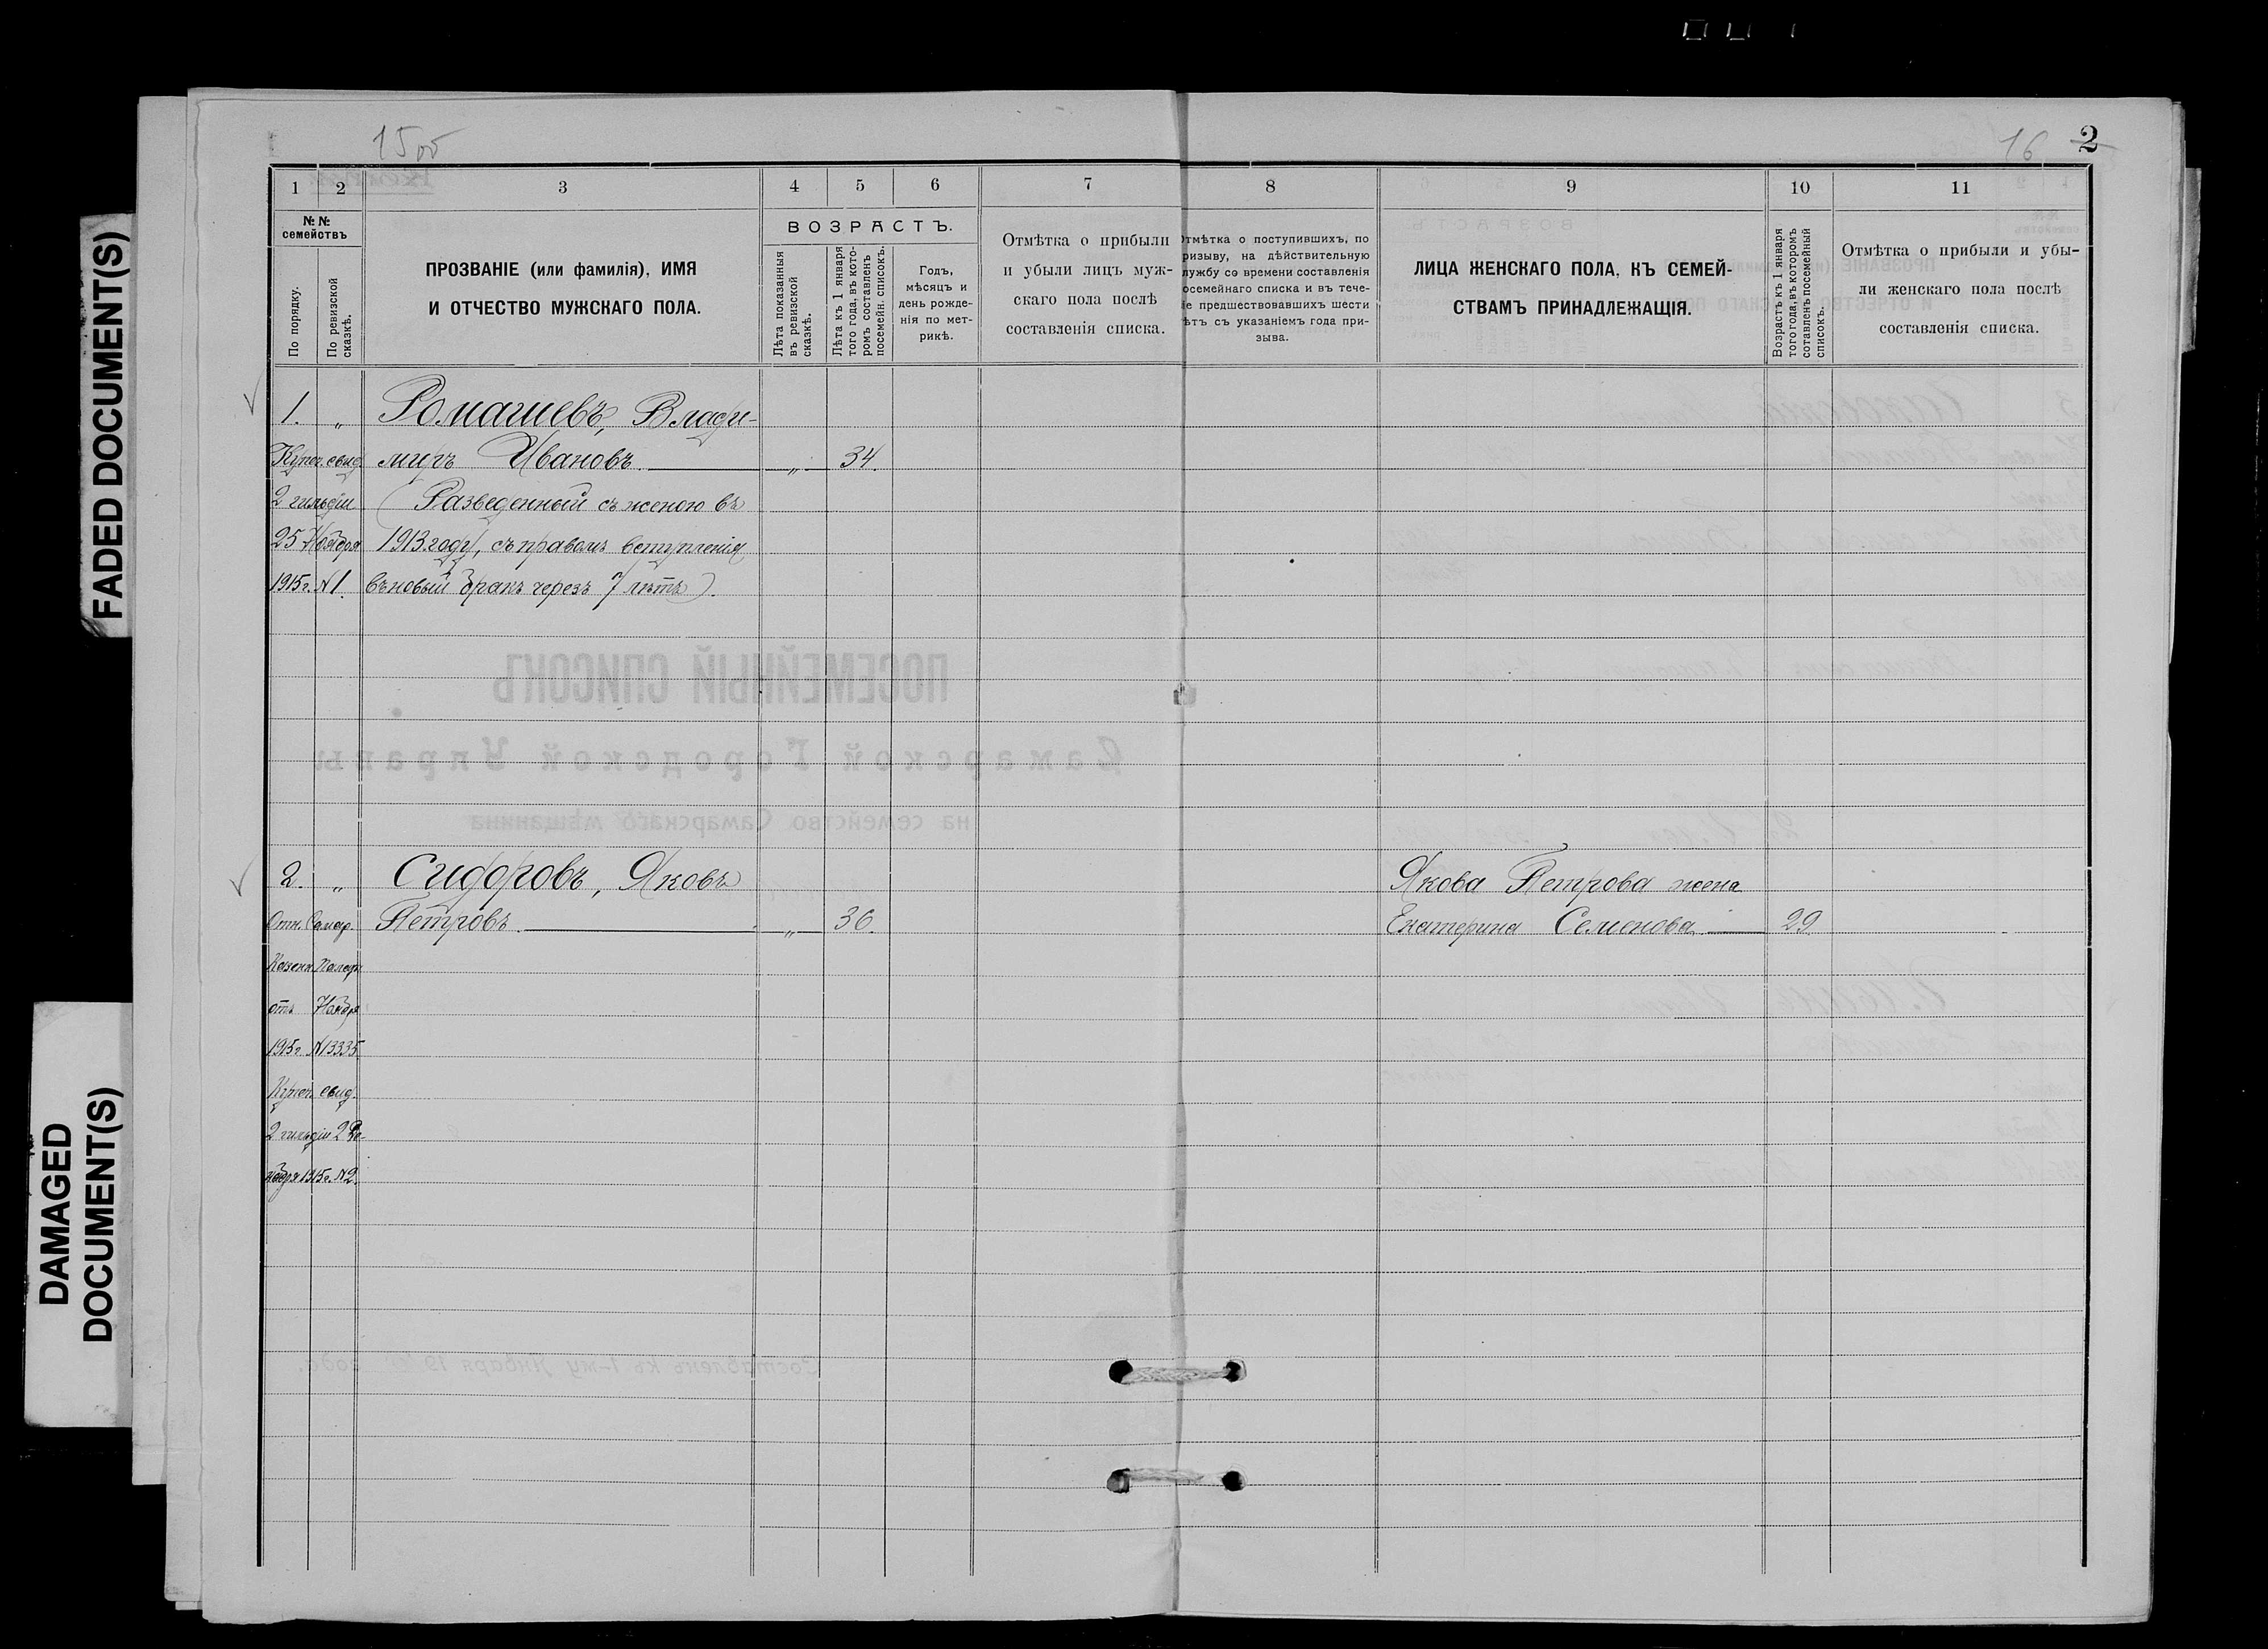 FADED DOCUMENT(S)
DAMAGED
DOCUMENT(S)
15об
16 2
1 2 3 4 5 6 7 8 9 10 11
№№ семействъ
По порядку.
По ревизской сказкѣ.
ПРОЗВАНІЕ (или фамилія), ИМЯ
И ОТЧЕСТВО МУЖСКАГО ПОЛА.
ВОЗРАСТЪ.
Лѣта показанныя
въ ревизской
сказкѣ.
Лѣта къ 1 января
того года, въ кото-
ромъ составленъ
посемейн. списокъ.
Годъ,
мѣсяцъ и
день рожде-
нія по мет-
рикѣ.
Отмѣтка о прибыли
и убыли лицъ муж-
скаго пола послѣ
составленія списка.
Отмѣтка о поступившихъ, по
ризыву, на дѣйствительную
лужбу со времени составленія
осемейнаго списка и въ тече-
е предшествовавшихъ шести
ѣтъ съ указаніемъ года при-
зыва.
ЛИЦА ЖЕНСКАГО ПОЛА, КЪ СЕМЕЙ-
СТВАМЪ ПРИНАДЛЕЖАЩІЯ.
Возрастъ къ 1 января
того года, въ которомъ
сотавленъ посемейный
списокъ.
Отмѣтка о прибыли и убы-
ли женскаго пола послѣ
составленія списка.
1. „ Ромашевъ, Влади-
Купеч. свид. миръ Ивановъ. „ 34.
2 гильдіи (Разведенный съ женою въ
25 Ноября 1913 году, съ правомъ вступленія
1915 г. №1. въ новый бракъ через 7 лѣтъ).
2. „ Сидоровъ, Яковъ Якова Петрова жена
Отн. Самар. Петровъ. „ 36. Екатерина Семенова 29.
Казенн. Палаты
отъ Ноября
1915 г. №13335
Купеч. свид.
2 гильдіи 2 Де-
кабря 1915 г. №2.